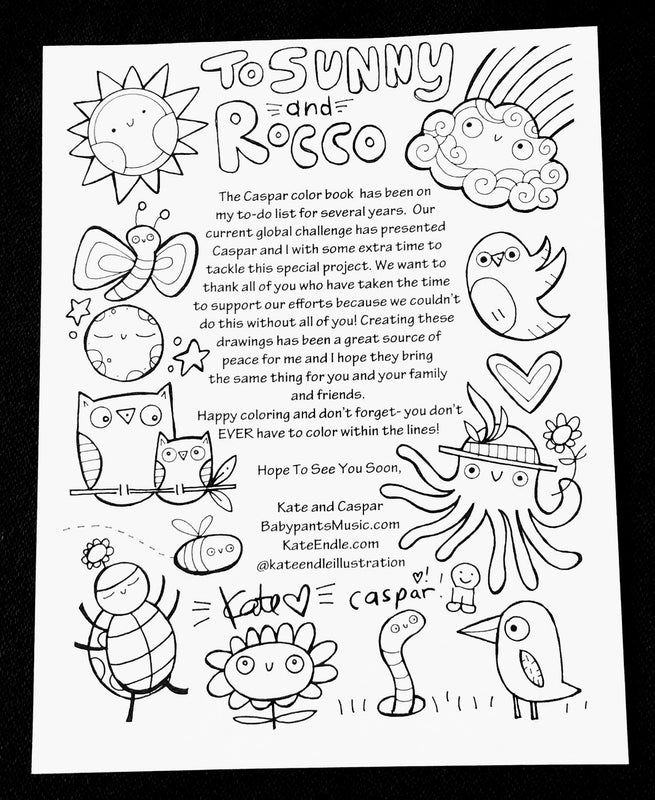 To SUNNY
and
ROCCO
The Caspar color book has been on
my to-do list for several years. Our
current global challenge has presented
Caspar and I with some extra time to
tackle this special project. We want to
thank all of you who have taken the time
to support our efforts because we couldn't
do this without all of you! Creating these
drawings has been a great source of
peace for me and I hope they bring
the same thing for you and your family
and friends.
Happy coloring and don't forget- you don't
EVER have to color within the lines!
Hope To See You Soon,
Kate and Caspar
BabypantsMusic.com
KateEndle.com
@kateendleillustration
Kate caspar!